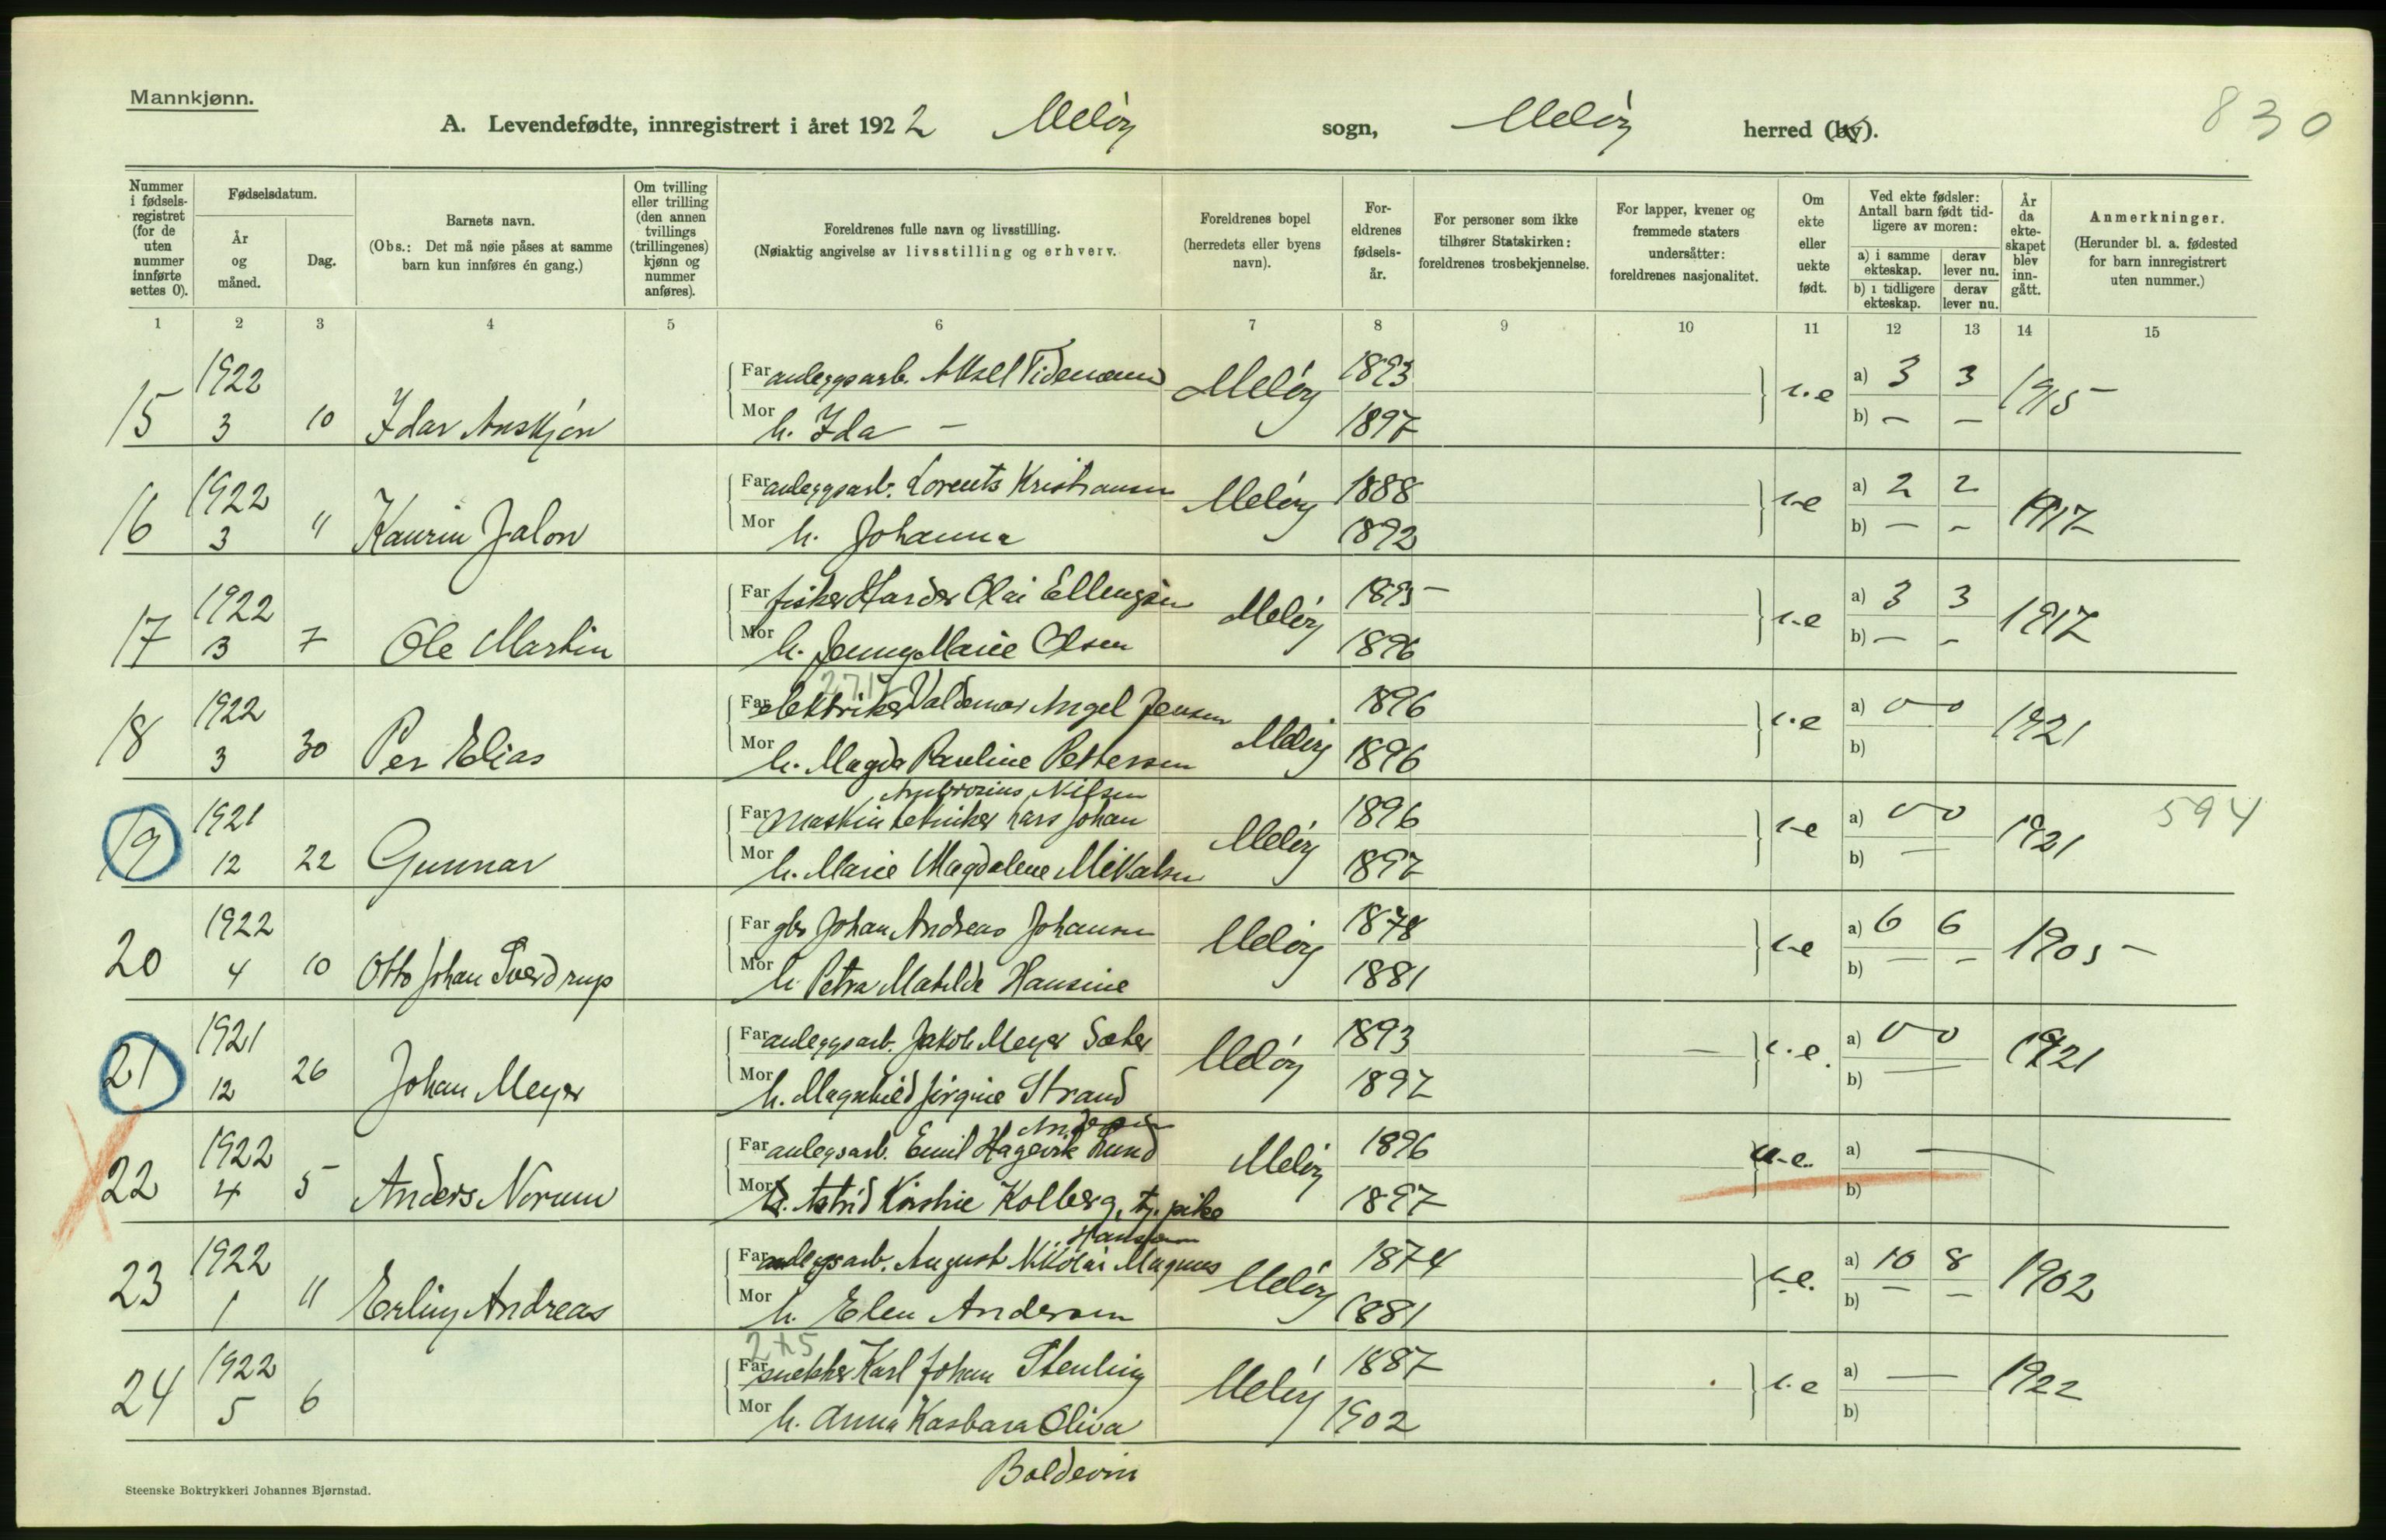 Mannkjønn.
A. Levendefødte, innregistrert i året 1922 Meløy sogn, Meløy herred (by).
830
Nummer i fødsels-registret (for de uten nummer innførte settes 0).
Fødselsdatum.
År og måned.
Dag.
Barnets navn.
(Obs.: Det må nøie påses at samme barn kun innføres én gang.)
Om tvilling eller trilling (den annen tvillings (trillingenes) kjønn og nummer anføres).
Foreldrenes fulle navn og livsstilling.
(Nøiaktig angivelse av livsstilling og erhverv.
Foreldrenes bopel (herredets eller byens navn).
For-eldrenes fødsels-år.
For personer som ikke tilhører Statskirken: foreldrenes trosbekjennelse.
For lapper, kvener og fremmede staters undersåtter: foreldrenes nasjonalitet.
Om ekte eller uekte født.
Ved ekte fødsler: Antall barn født tid-ligere av moren:
a) i samme ekteskap.
derav lever nu.
b) i tidligere ekteskap.
derav lever nu.
År da ekte-skapet blev inn-gått.
Anmerkninger.
(Herunder bl. a. fødested for barn innregistrert uten nummer.)
1 2 3 4 5 6 7 8 9 10 11 12 13 14 15
15 1922 3 10 Idar Anskjøn
Far anleggsarb. Aksel Tidemann Meløy 1893 e a) 3 3 1915
Mor h. Ida – 1897 b) – –
16 1922 3 11 Kaurin Jalon
Far anleggsarb. Lorents Kristiansen Meløy 1888 e a) 2 2 1917
Mor h. Johanna 1892 b) – –
17 1922 3 7 Ole Martin
Far fisker Olai Ellingsen Meløy 1895 e a) 3 3 1917
Mor h. Jenny Marie Olsen 1896 b) – –
18 1922 3 30 Per Elias
Far elektriker Valdemar Angel Jensen Meløy 1896 e a) 0 0 1921
Mor h. Magda Pauline Pettersen 1896 b)
19 1921 12 22 Gunnar
Ambrosius Nilsen
Far Maskintekniker Lars Johan Meløy 1896 e a) 0 0 1921 594
Mor h. Marie Magdalene Mikalsen 1897 b) –
20 1922 4 10 Otto Johan Sverdrup
Far gbr Johan Andreas Johansen Meløy 1878 e a) 6 6 1905
Mor h. Petra Matilde Hansine 1881 b) – –
21 1921 12 26 Johan Meyer
Far anleggsarb. Jakob Meyer Sæter Meløy 1893 – e. a) 0 0 1921
Mor h. Magnhild Strand 1897 b) –
22 1922 4 5 Anders Norum
Andersen
Far anleggsarb. Emil Hagevik Lund Meløy 1896 u.e. a) –
Mor Astrid Kirstine Kolberg, tj. pike 1897 b)
23 1922 1 11 Erling Andreas
Hansen
Far anleggsarb. August Nikolai Magnus Meløy 1874 e. a) 10 8 1902
Mor h. Elen Andersen 1881 b) – –
24 1922 5 6
Far snekker Karl Johan Stenling Meløy 1887 e a) – 1922
Mor h. Anna Kasbara Oliva 1902 b)
Boldevin
Steenske Boktrykkeri Johannes Bjørnstad.